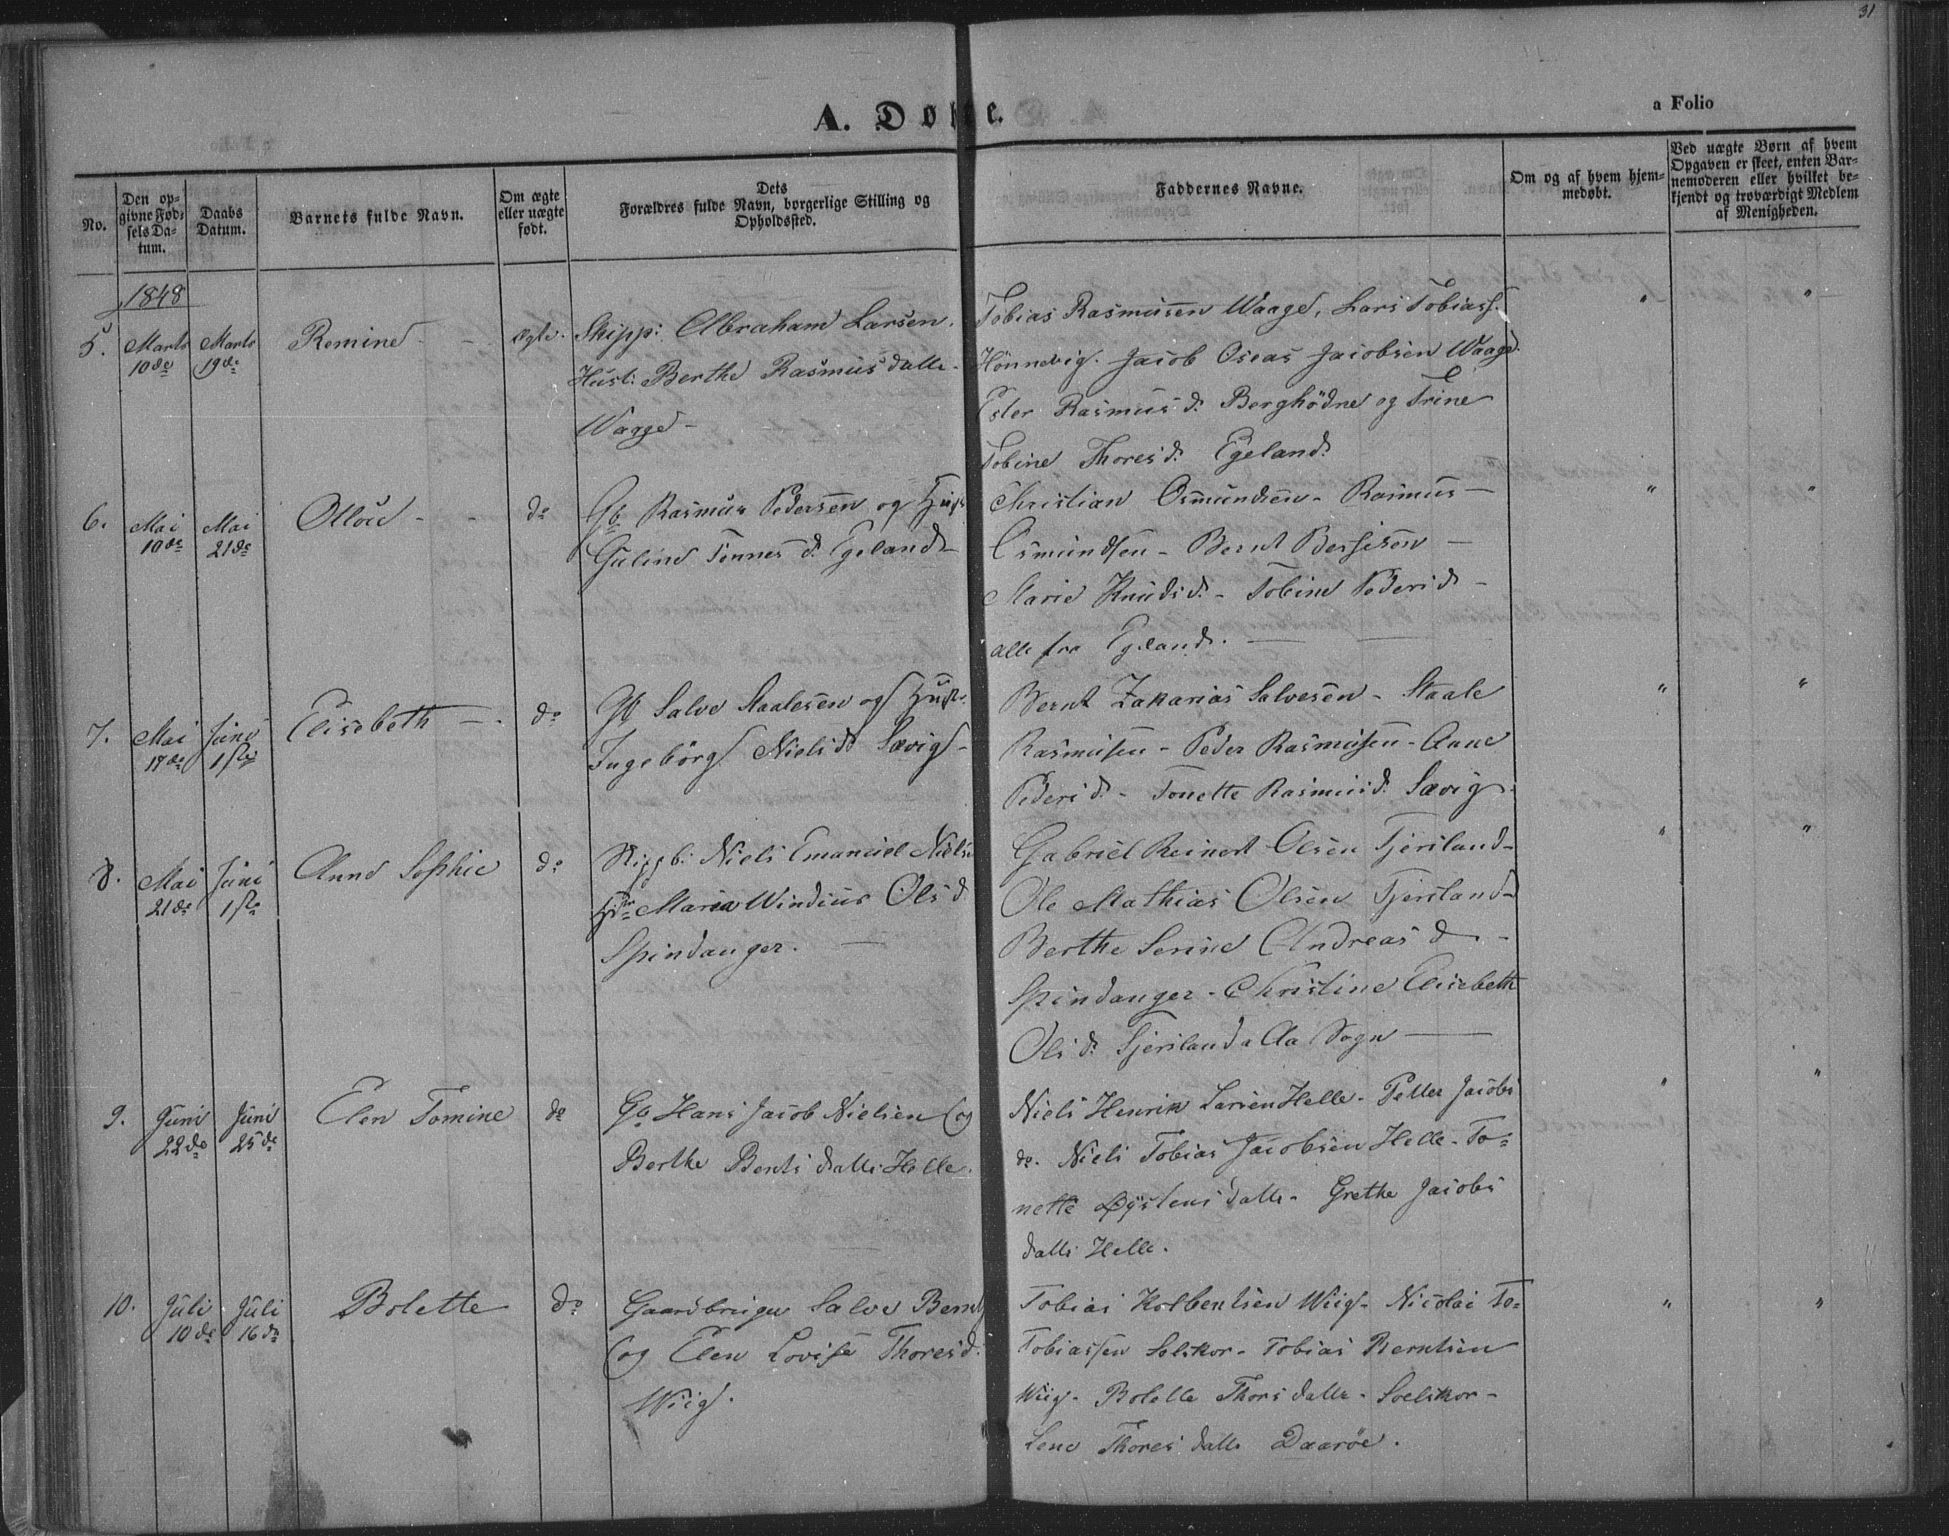 31
A. Døbte.
a Folio
No.
Den op-
givne Fød-
sels Da-
tum.
Daabs
Datum.
Barnets fulde Navn.
Om ægte
eller uægte
født.
Dets
Forældres fulde Navn, borgerlige Stilling og
Opholdssted.
Faddernes Navne.
Om og af hvem hjem-
medøbt.
Ved uægte Børn af hvem
Opgaven er skeet, enten Bar-
nemoderen eller hvilket be-
kjendt og troværdigt Medlem
af Menigheden.
1848
5.
Marts
10de
Marts
19de
Remine
ægte.
Skipp: Abraham Larsen.
Hust: Berthe Rasmusdatter
Waage
Tobias Rasmusen Waage, Lars Tobiass.
Hönnevig. Jacob Oseas Jacobsen Waage.
Ester Rasmus d. Berghödne og Trine
Tobine Thores d. Egeland.
" "
6.
Mai
10de
Mai
21de
do
Gb Rasmus Pedersen og Hust
Guline Tønnes d. Egeland
Christian Osmundsen - Rasmus
Osmundsen - Bernt Bessesen
Marie Knuds d. - Tobine Peders d
alle fra Egeland.
" "
7.
Mai
17de
Juni
1ste
Elisebeth
do
Gb Salve Staalesen og Hust.
Ingeborg Niels d. Sævig
Bernt Zakarias Salvesen - Staale
Rasmusen - Peder Rasmusen - Anne
Peders d. - Tonette Rasmus d. Sævig.
" "
8.
Mai
21de
Juni
1ste
Anne Sophie
do
Skippb: Niels Emanuel Niels
Maria Windius Ols d
Spindanger.
Gabriel Reinert Olsen Tjersland
Ole Mathias Olsen Tjersland
Berthe Serine Andreas d
Spindanger - Christine Elisebeth
Ols d. Tjersland a Aa Sogn
" "
9.
Juni
22de
Juni
25de
Elen Tomine
do
Gb Hans Jacob Nielsen og
Berthe Bents datter Helle.
Niels Henrik Larsen Helle - Petter Jacobs
do. Niels Tobias Jacobsen Helle - To-
nette Øystens datter - Grethe Jacobs
datter Helle.
" "
10.
Juli
10de
Juli
16de
Bolette
do
Gaardbruger Salve Bernt
og Elen Lovise Thores d.
Wiig.
Tobias Kolbentsen Wiig - Nicolai To-
Tobiassen Selskor - Tobias Berntsen
Wiig - Bolette Thors datter - Soelskor -
Lene Thores datter Daarøe.
" "